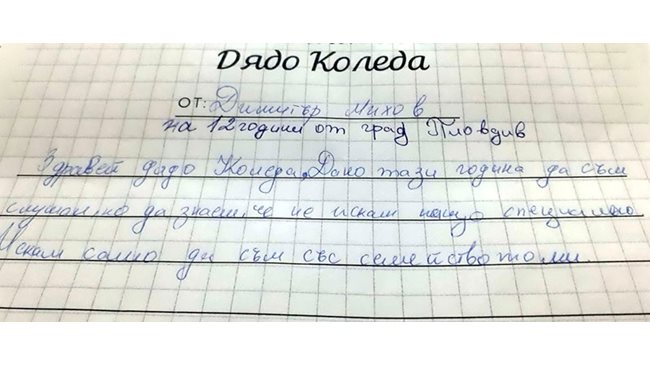 Дядо Коледа
от: Димитър Михов
на 12 години от град Пловдив
Здравей дядо Коледа, Дано тази година да съм
слушан, но да знаеш, че не искам нещо специално
Искам само да съм със семейството ми.